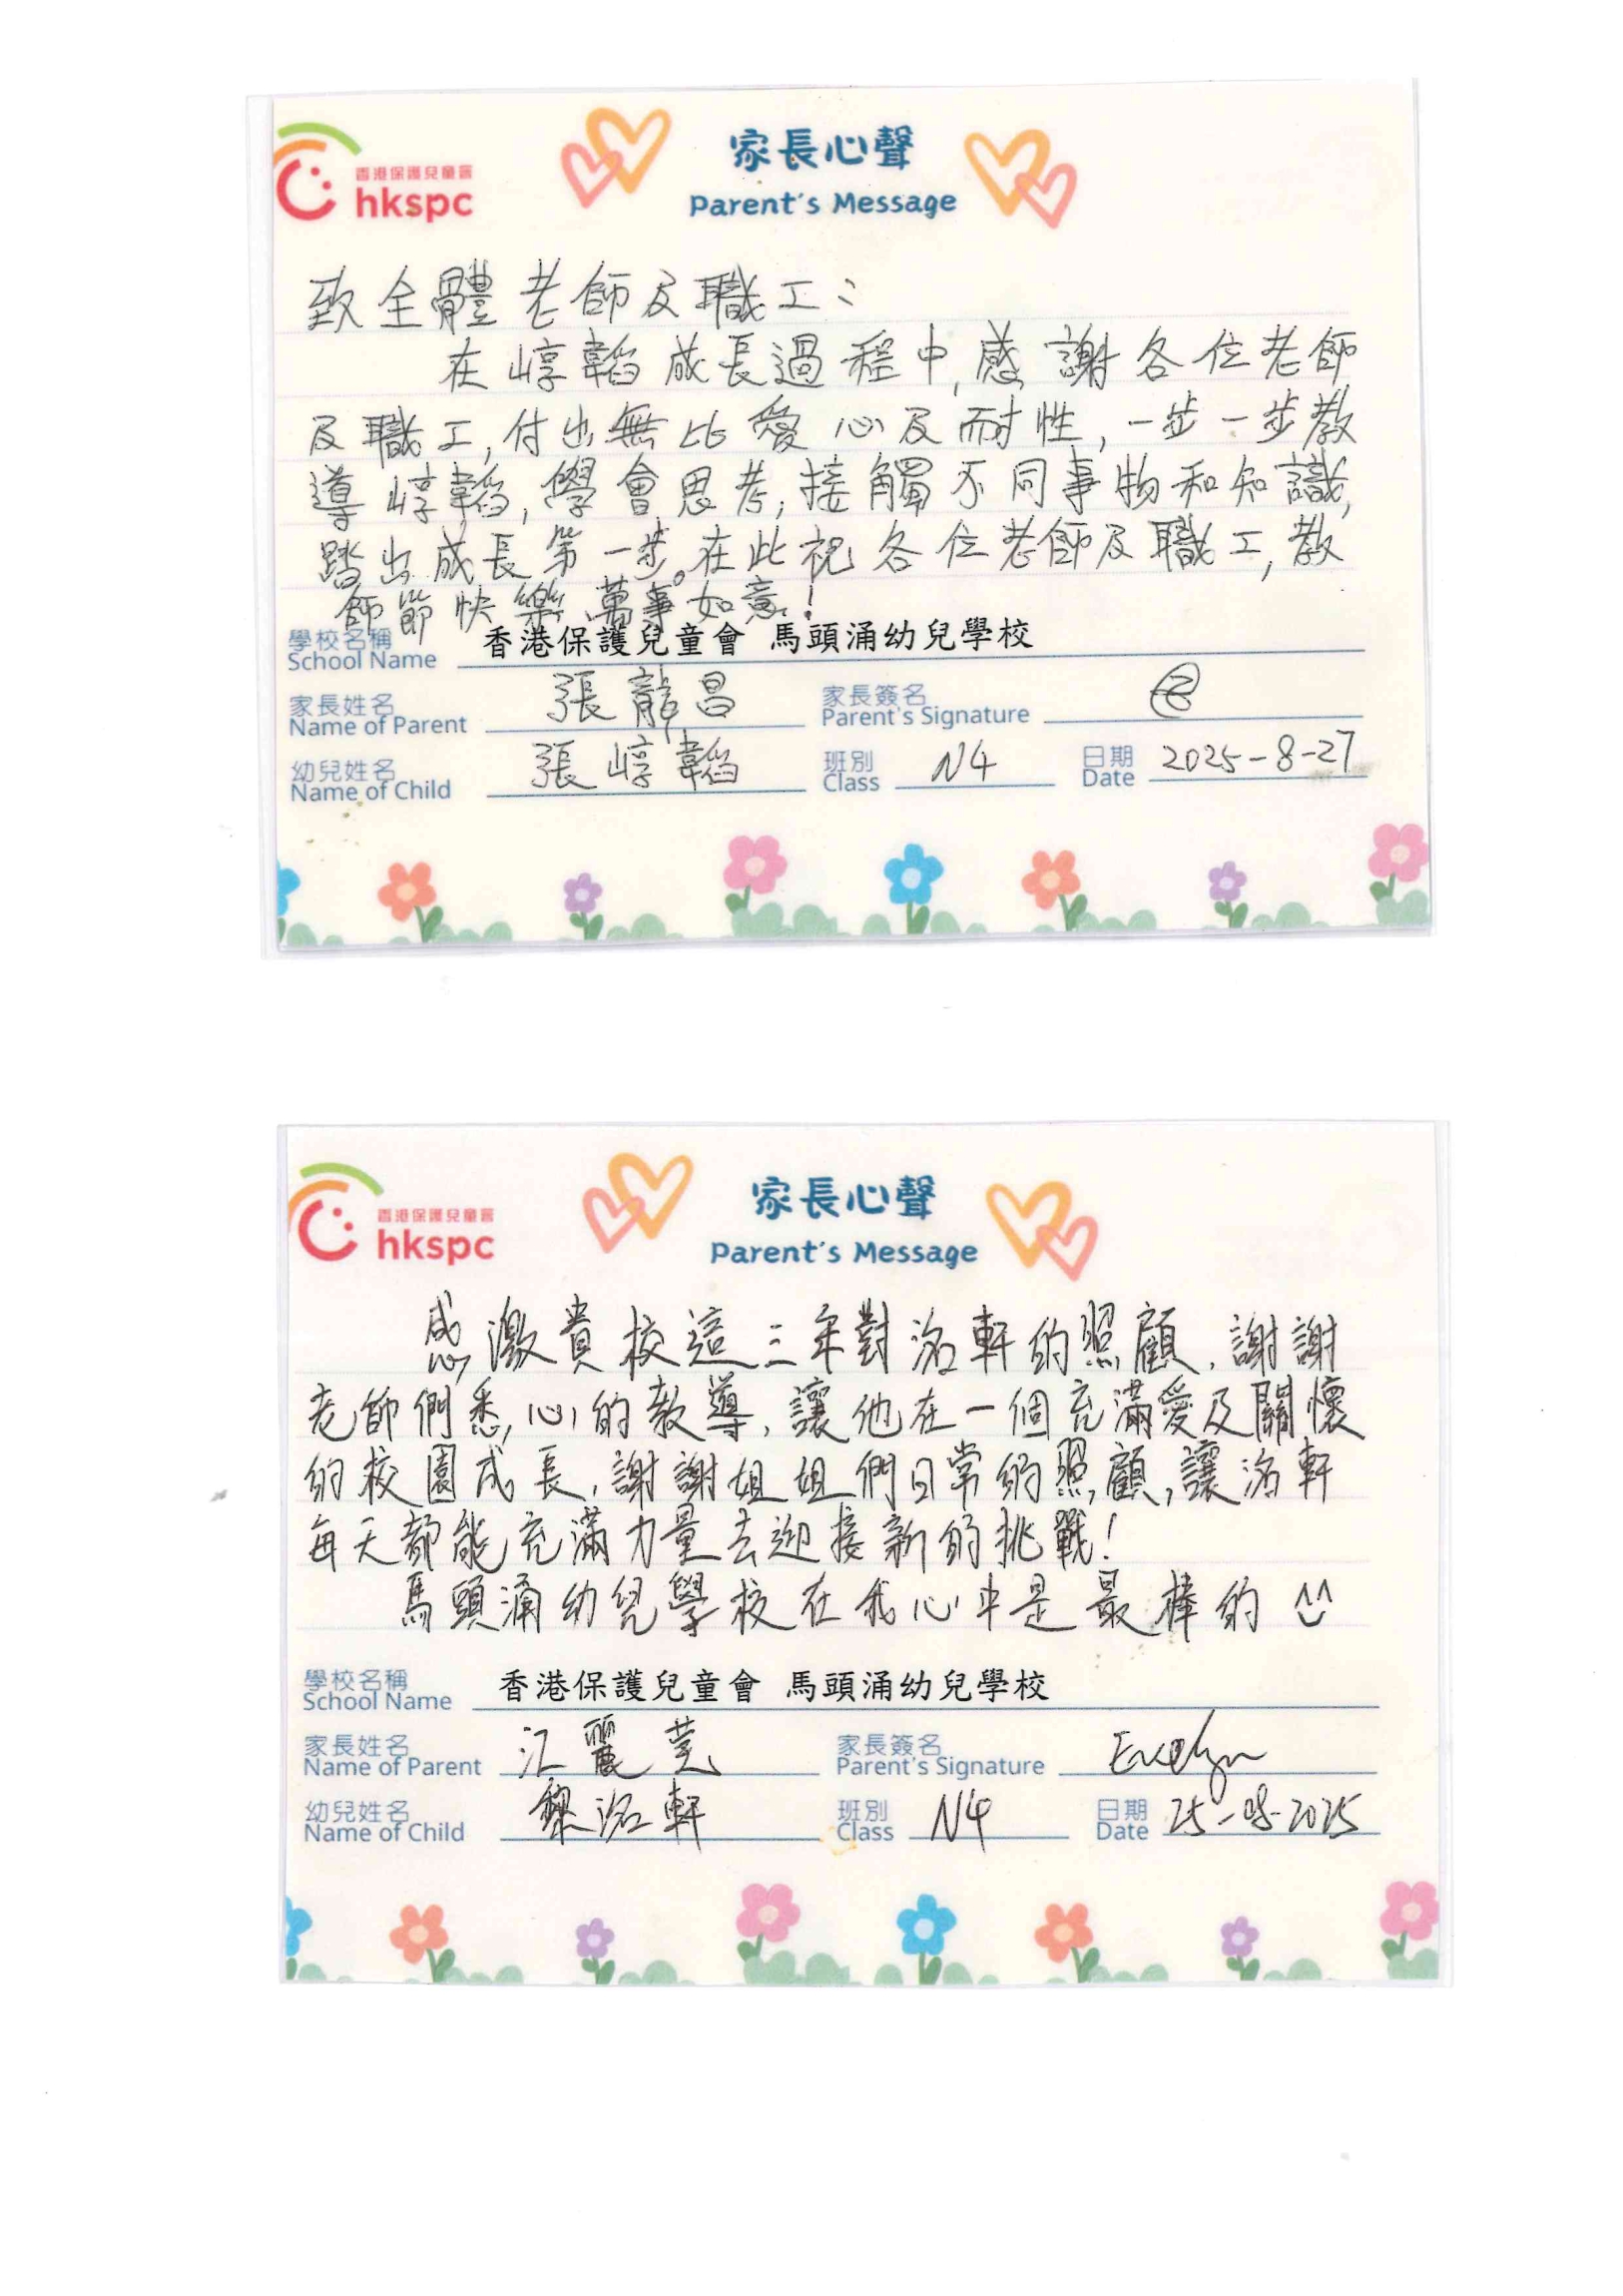 香港保護兒童會
hkspc
家長心聲
Parent's Message
致全體老師及職工：
在崞韜成長過程中,感謝各位老師
及職工,付出無比愛心及耐性,一步一步教
導崞韜,學會思考,接觸不同事物和知識,
踏出成長第一步。在此祝各位老師及職工,教
師節快樂,萬事如意!
學校名稱 香港保護兒童會 馬頭涌幼兒學校
School Name
家長姓名 張龍昌 家長簽名
Name of Parent Parent's Signature
幼兒姓名 張崞韜 班別 N4 日期 2025-8-27
Name of Child Class Date
香港保護兒童會
hkspc
家長心聲
Parent's Message
感激貴校這三年對洺軒的照顧,謝謝
老師們悉心的教導,讓他在一個充滿愛及關懷
的校園成長,謝謝姐姐們日常的照顧,讓洺軒
每天都能充滿力量去迎接新的挑戰!
馬頭涌幼兒學校在我心中是最棒的 ^^
學校名稱 香港保護兒童會 馬頭涌幼兒學校
School Name
家長姓名 江麗芫 家長簽名 Evelyn
Name of Parent Parent's Signature
幼兒姓名 黎洺軒 班別 N4 日期 25-08-2025
Name of Child Class Date